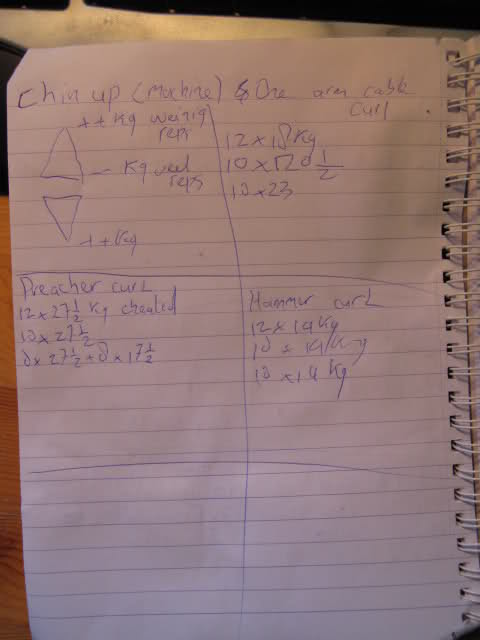 Chin up (Machine) & One arm cable
curl
++ Kg weinig
reps
- Kg veel
reps
++Kg
12 x 18 Kg
10 x 20 1/2
10 x 23
Preacher curl
12 x 27 1/2 Kg cheated
10 x 27 1/2
8 x 27 1/2 + 8 x 17 1/2
Hammer curl
12 x 14 Kg
10 x 14 Kg
10 x 14 Kg